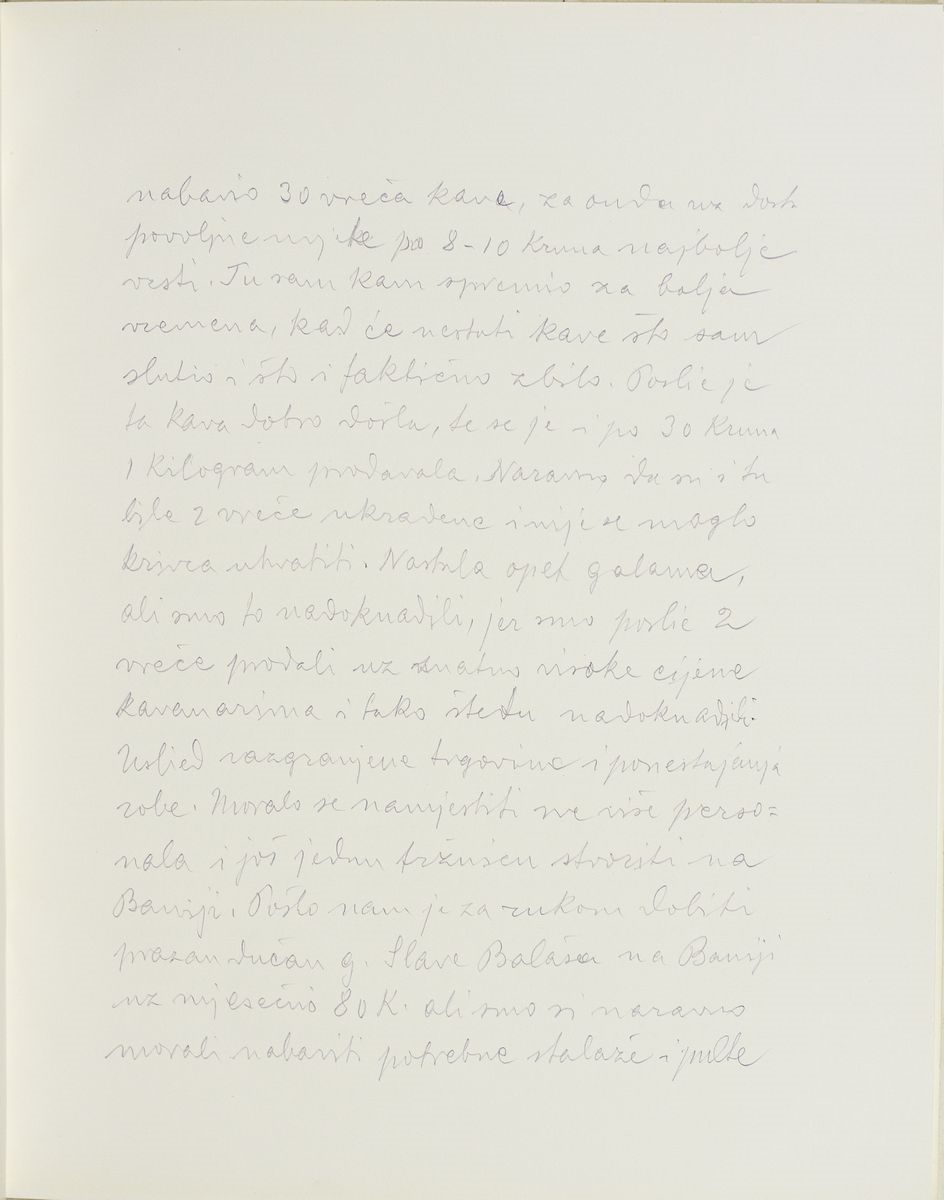 nabavio 30 vreća kave, za onda uz dosta
povoljne uvjete po 8-10 Kruna najbolje
vrsti. Tu sam kam spremio za bolja
vremena, kad će nestati kave što sam
slutio i što i faktično zbilo. Poslie je
ta kava dobro došla, te se je i po 30 Kruna
1 Kilogram prodavala. Naravno da su i tu
bile 2 vreće ukradene i nije se moglo
krivca uhvatiti. Nastala opet galama,
ali smo to nadoknadili, jer smo poslie 2
vreće prodali uz znatno visoke cijene
kavanarima i tako štetu nadoknadili.
Uslied razgranjene trgovine i ponestajanja
robe. Moralo se namjestiti sve više perso=
nala i još jednu tržnicu stvoriti na
Baniji. Pošlo nam je za rukom dobiti
prazan dučan g. Slave Balaša na Baniji
uz mjesečno 80 K. ali smo si naravno
morali nabaviti potrebne stalaže i pulte